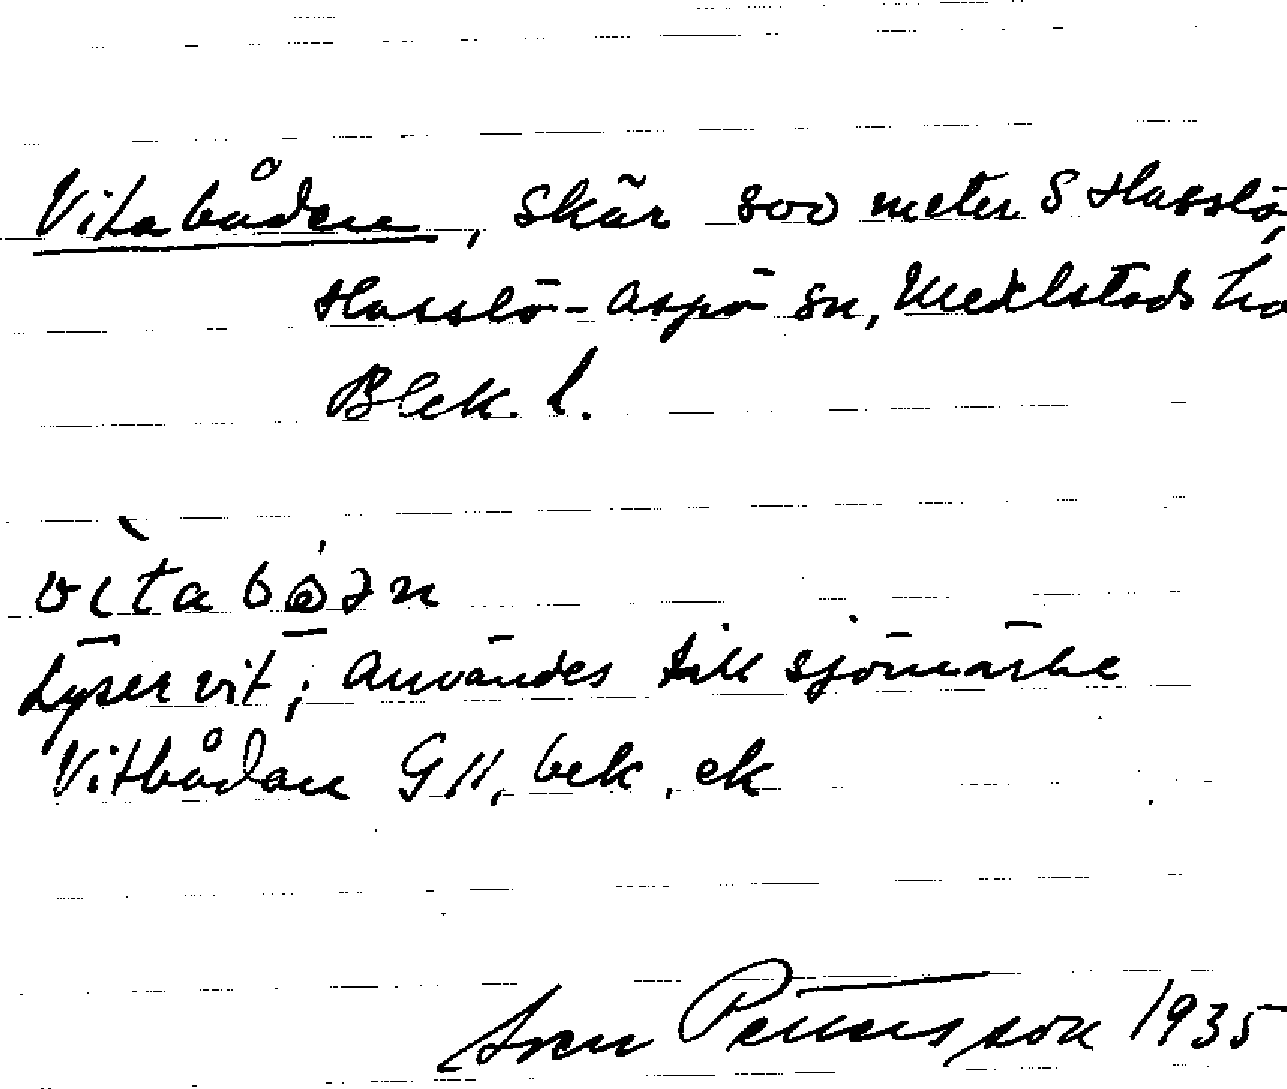 Vita båden, skär 800 meter S Hasslö,
Hasslö-Aspö sn, Medelstads hd
Blek. l.
vìta bó̱ən
Lyser vit; användes till sjömärke
Vitbådan GK, bek, ek
Sven Pettersson 1935